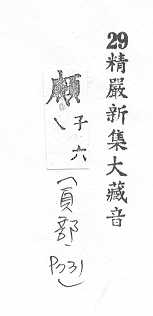 29精嚴新集大藏音
子六
(頁部 P031)